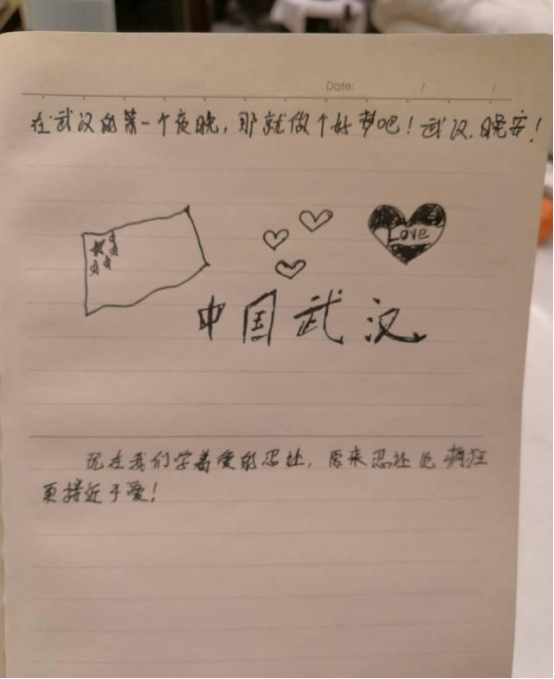 Date: / /
在武汉的第一个夜晚，那就做个好梦吧！武汉.晚安！
Love
中国武汉
现在我们学着爱的忍让，原来忍让比疯狂
更接近于爱！